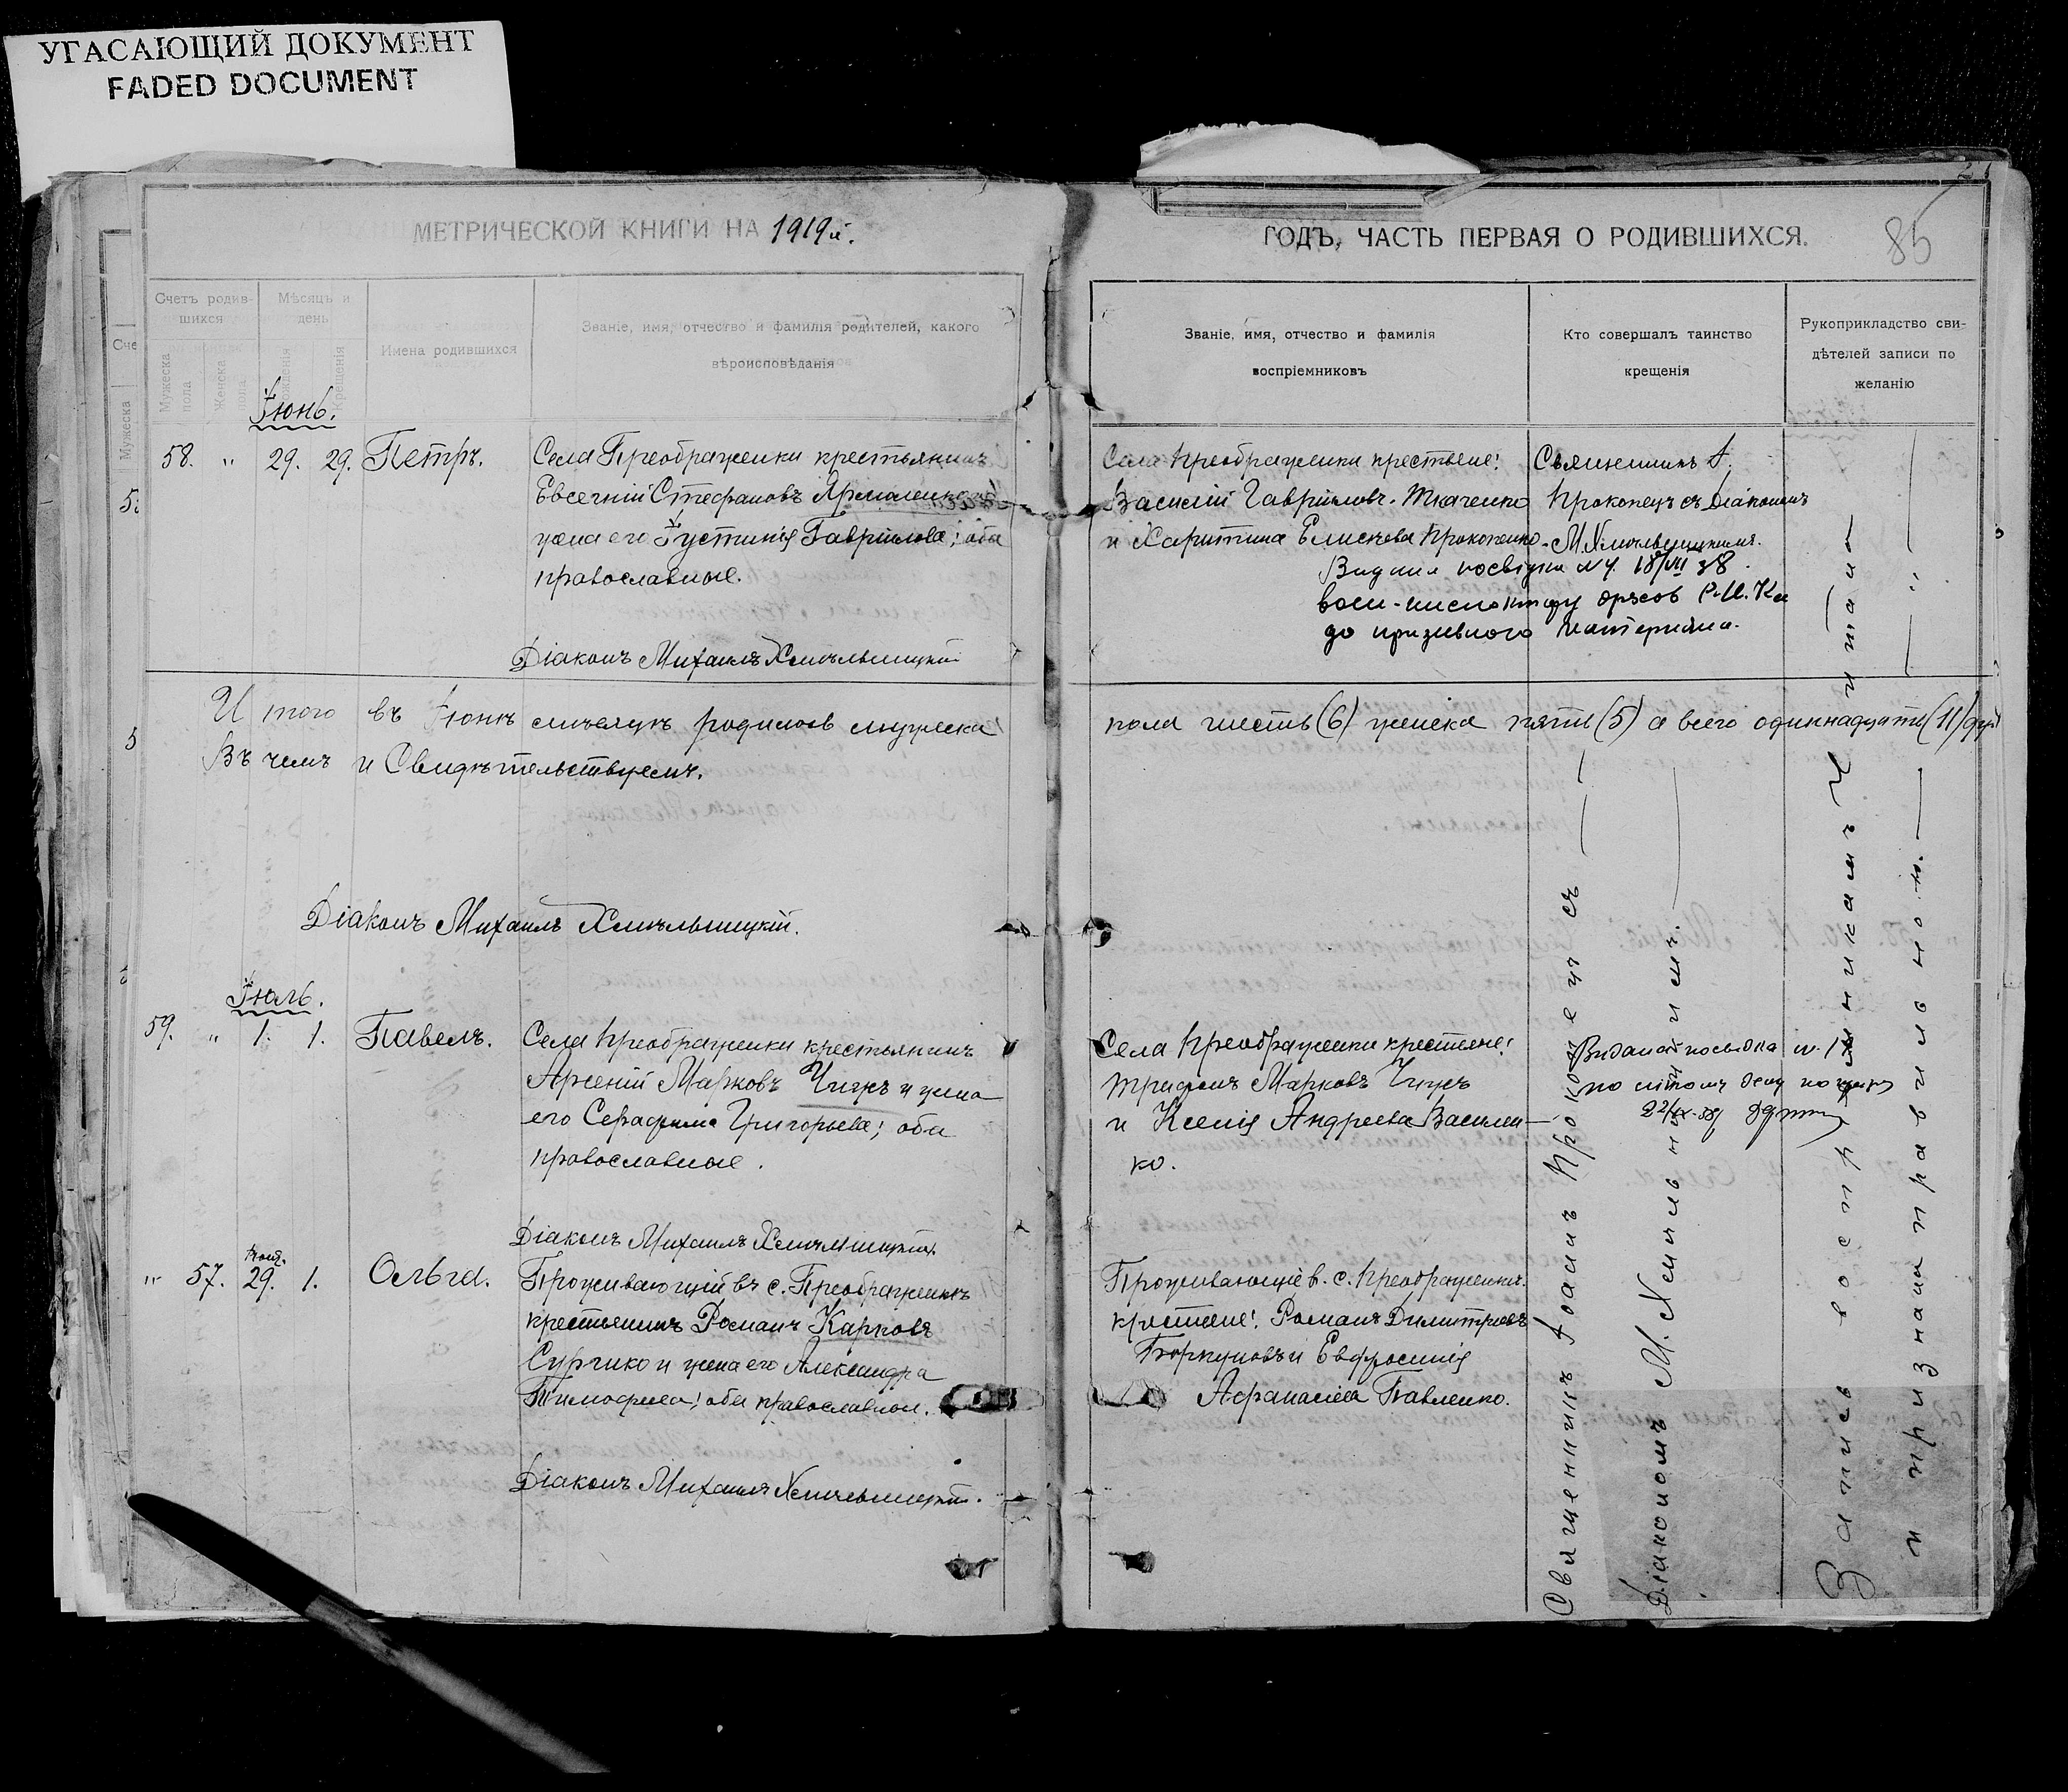 УГАСАЮЩИЙ ДОКУМЕНТ
FADED DOCUMENT
МЕТРИЧЕСКОЙ КНИГИ НА 1919й.
Счетъ родив-
шихся
Мѣсяцъ и
день
Мужеска
пола
Женска
пола
Крещенія
Имена родившихся
Званіе, имя, отчество и фамилія родителей, какого
вѣроисповѣданія
Іюнь.
58. " 29. 29. Петръ.
Села Преображенки крестьянинъ
Евсегній Стефановъ Ярмоленко
жена его Іустинія Гавріилова; оба
православные.
Діаконъ Михаилъ Хмѣльницкій
Итого въ Іюнѣ мѣсяцѣ родилось мужеска
Въ чемъ и Свидѣтельствуемъ.
Діаконъ Михаилъ Хмѣльницкій.
Іюль.
59. " 1. 1. Павелъ.
Села Преображенки крестьянинъ
Арсеній Марковъ Чижъ и жена
его Серафима Григорьева; оба
православные.
Діаконъ Михаилъ Хмѣльницкій.
" 57. 29. 1. Ольга.
Проживающій въ с. Преображенкѣ
крестьянинъ Романъ Карповъ
Сурчико и жена его Александра
Тимофеева; оба православные.
Діаконъ Михаилъ Хмѣльницкій.
ГОДЪ, ЧАСТЬ ПЕРВАЯ О РОДИВШИХСЯ.
85
Званіе, имя, отчество и фамилія
воспріемниковъ
Кто совершалъ таинство
крещенія
Рукоприкладство сви-
дѣтелей записи по
желанію
Села Преображенки крестьяне:
Василій Гавріиловъ Ткаченко
и Харитина Елисеева Прокопенко.
Священникъ І.
Прокопецъ съ Діакономъ
М. Хмѣльницкимъ.
Видана посвідка № 4 18/VII 38
до призивного
пола шесть (6) женска пять (5) а всего одиннадцать (11) душ
Села Преображенки крестьяне:
Трифонъ Марковъ Чижъ
и Ксенія Андреева Василен-
ко.
Видана посвідка
Проживающіе в. с. Преображенкѣ.
крестьяне: Романъ Димитріевъ
и Евфросинія
Афанасіева Павленко.
Священникъ Іоаннъ Прокопецъ съ
Діакономъ М. Хмѣльницкимъ.
Запись воспріемникамъ читано
и признана правильною.